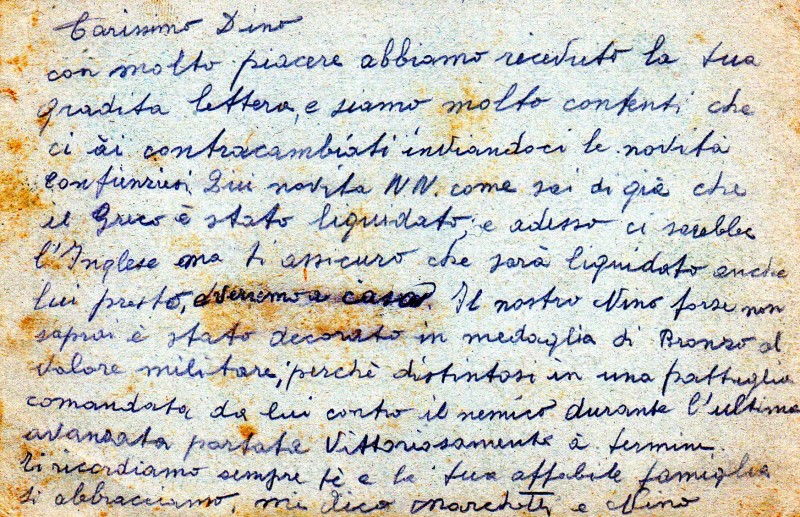 Carissimo Dino
con molto piacere abbiamo receduto la tua
gradita lettera, e siamo molto contenti che
ci ài contracambiati inviandoci le novità
Qui novita NN. come sai di già che
il Greco è stato liquidato, e adesso ci sarebbe
l'Inglese ma ti assicuro che sarà liquidato anche
lui presto, e verremo a casa. Il nostro Nino forse non
saprai è stato decorato in medaglia di Bronzo al
valore militare, perchè distintosi in una pattuglia
comandata da lui contro il nemico durante l'ultima
avanzata portata Vittoriosamente à termine.
ti ricordiamo sempre tè e la tua affabile famiglia
ti abbracciamo, mi dico Marchetti e Nino